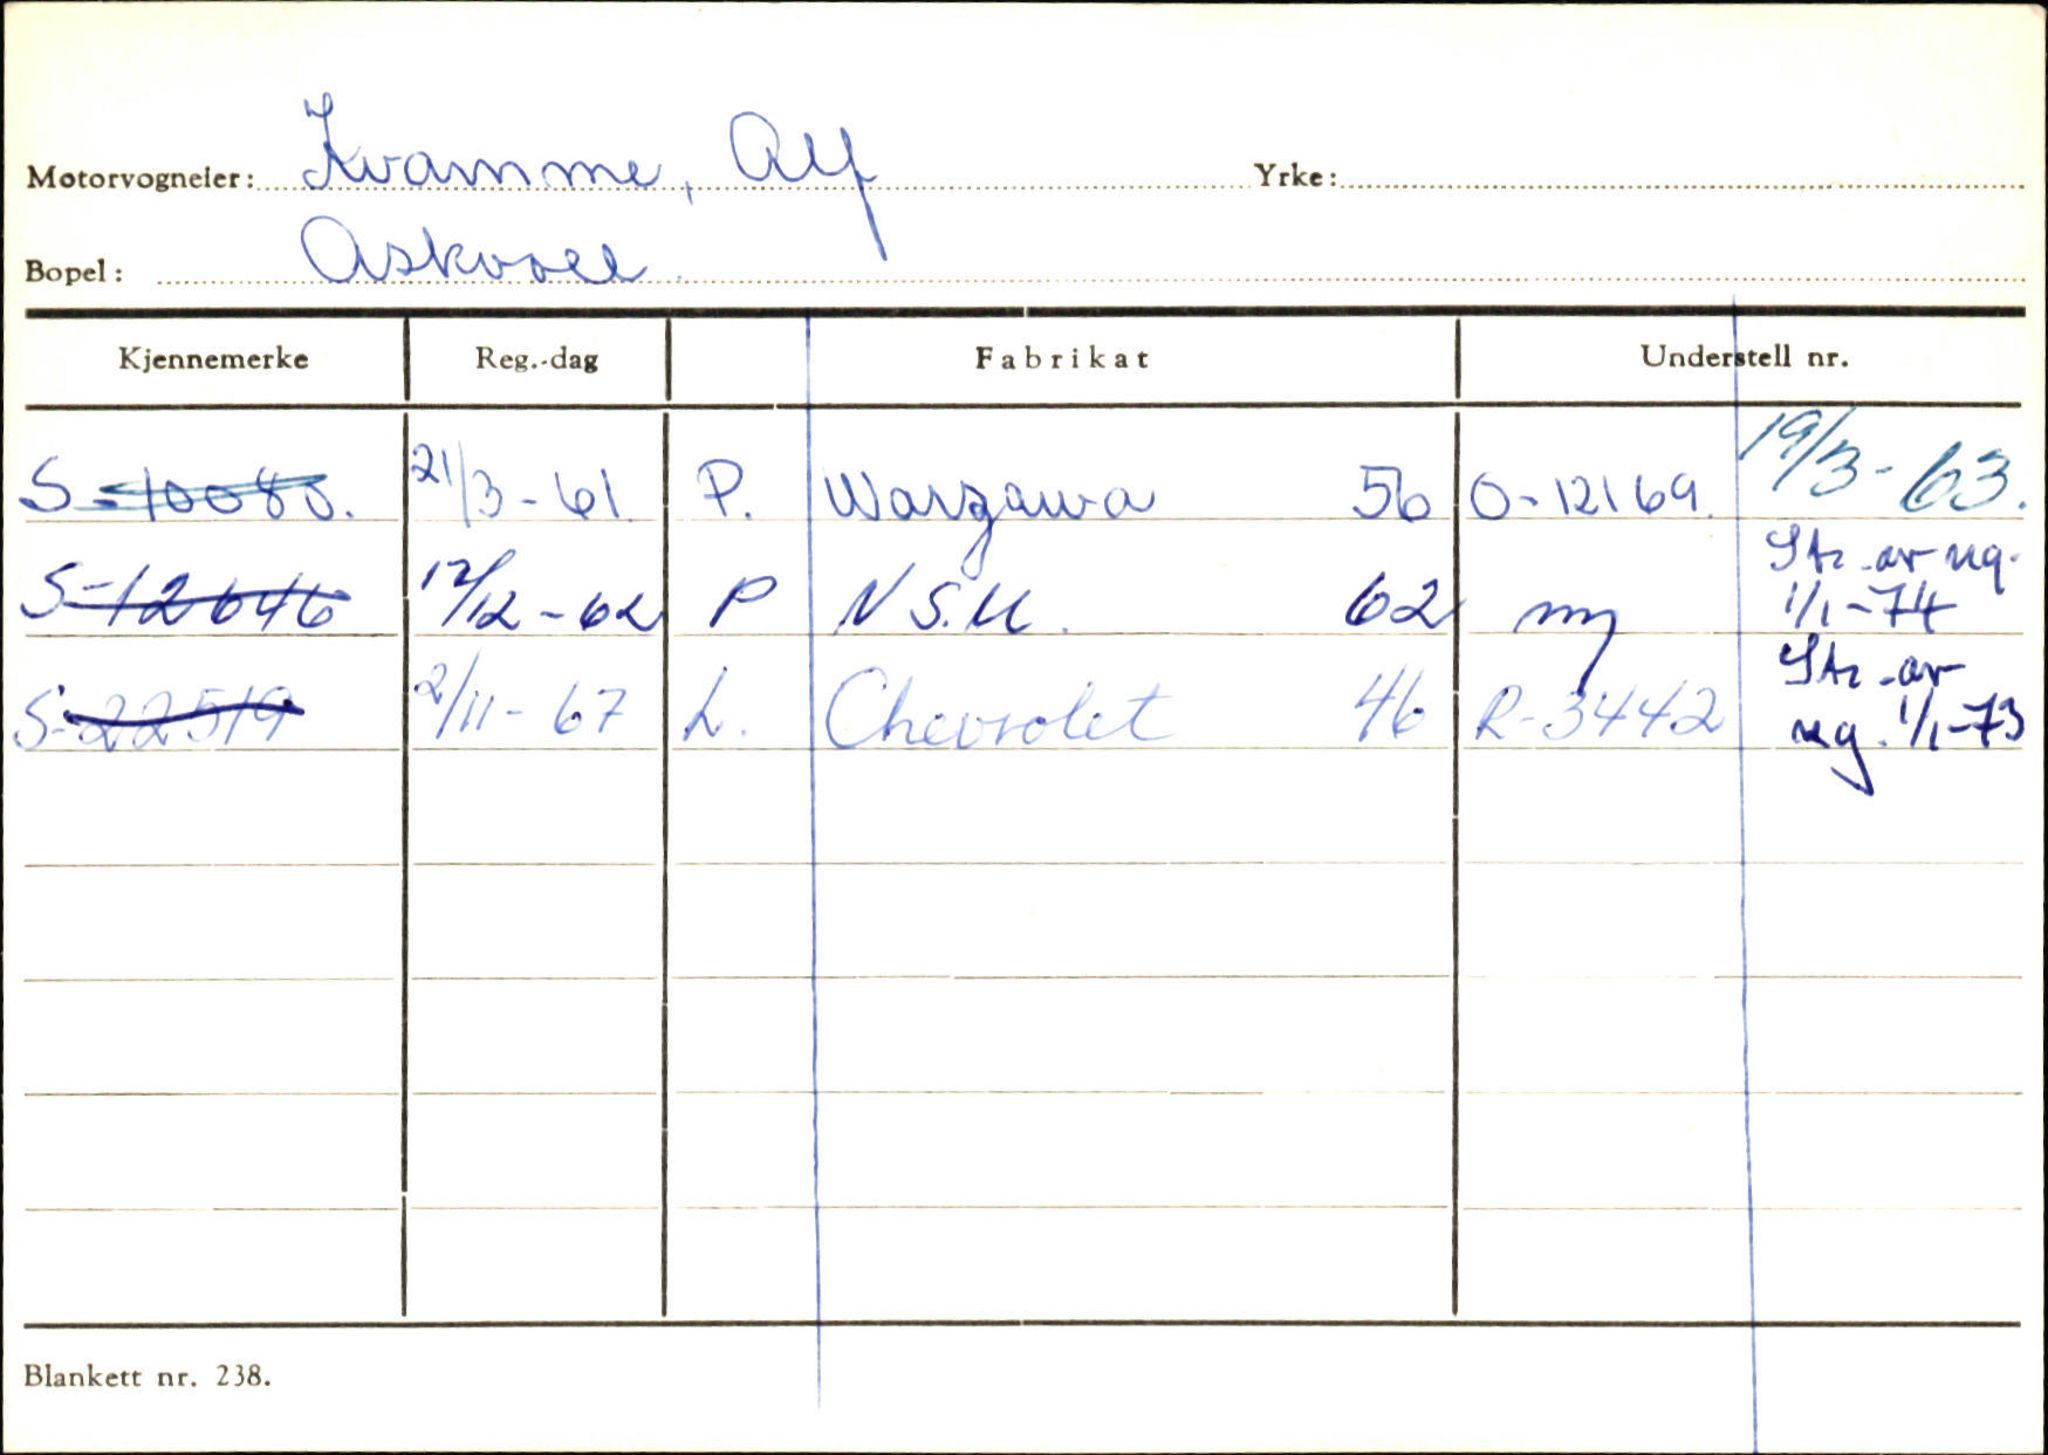 Motorvogneier: Kvamme, Alf Yrke:
Bopel: Askvoll.
Kjennemerke Reg.-dag Fabrikat Understell nr.
S-10080. 21/3-61 P. Warzawa 56 O-12169. 19/3-63.
S-12646 12/12-62 P N S.U. 62 ny Str. av reg. 1/1-74
S-22519 2/11-67 L. Chevrolet 46 R-3442 Str. av reg. 1/1-73
Blankett nr. 238.